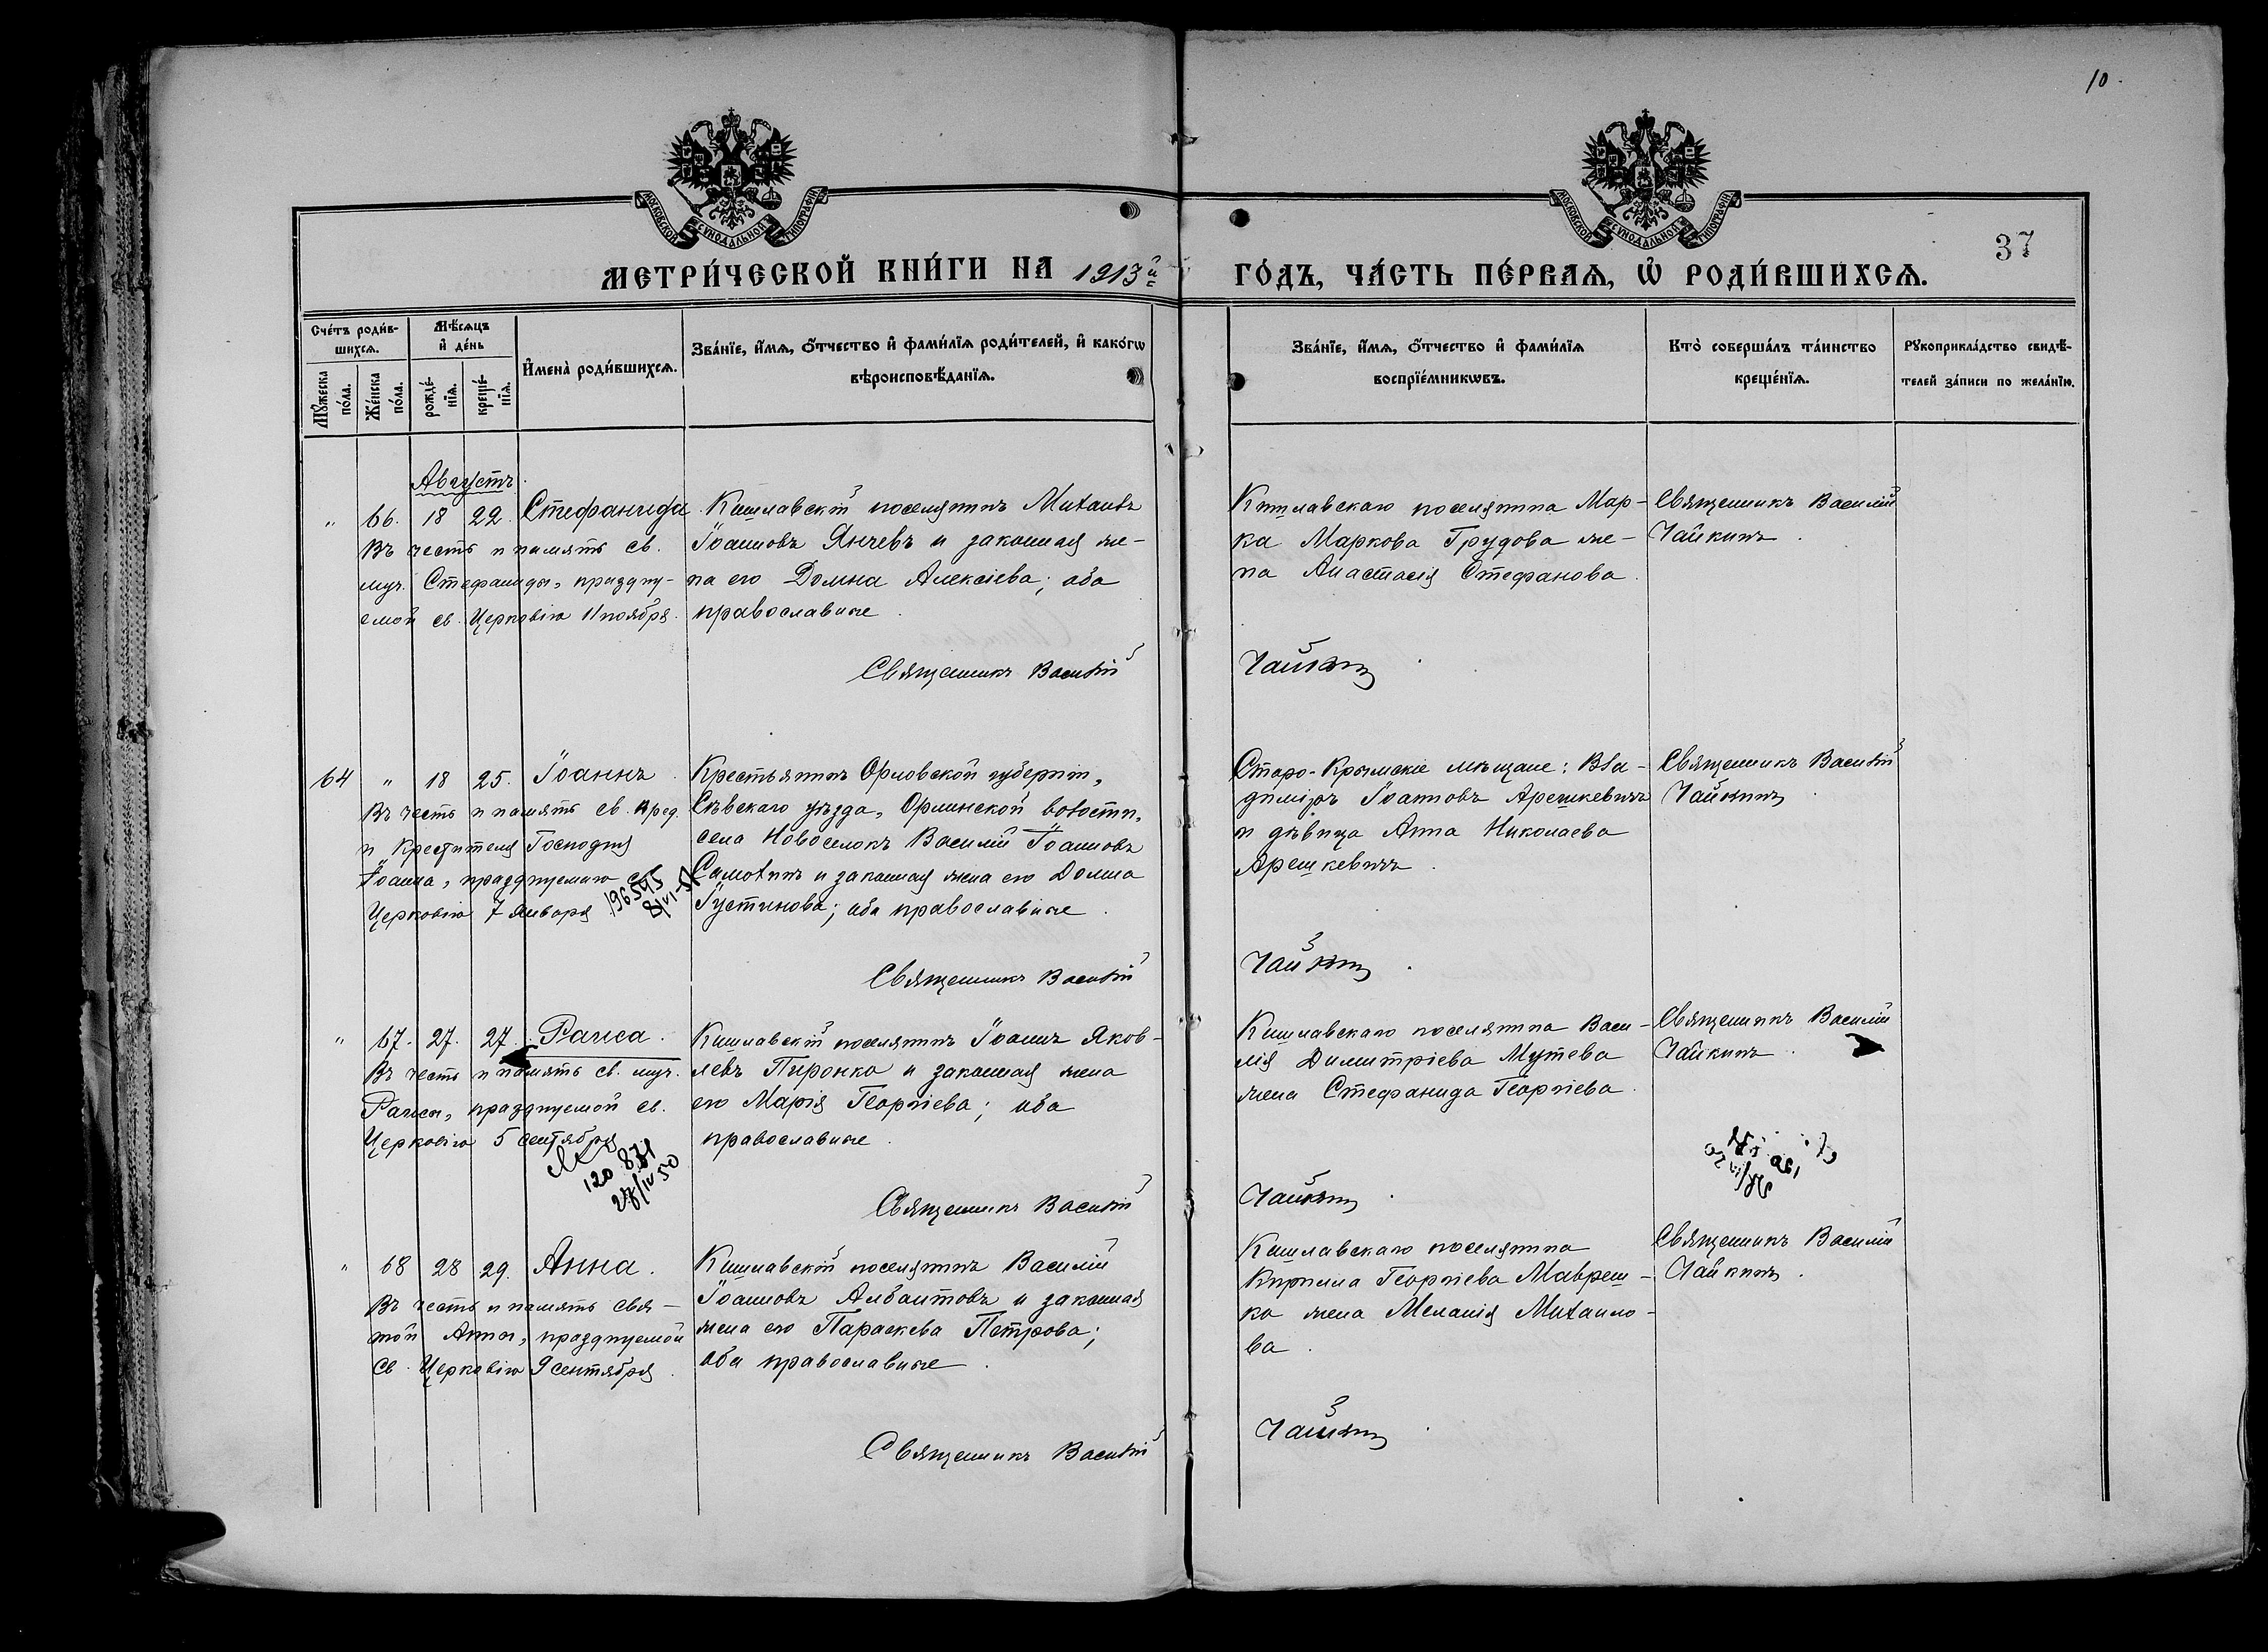 10.
МОСКОВСКОЙ СѴНОДАЛЬНОЙ ТИПОГРАФІИ
МОСКОВСКОЙ СѴНОДАЛЬНОЙ ТИПОГРАФІИ
37
МЕТРИ́ЧЕСКОЙ КНИ́ГИ НА 1913й ГО́ДЪ, ЧА́СТЬ ПЕ́РВАѦ, Ѡ҆ РОДИ́ВШИХСѦ.
Сче́тъ роди́вшихсѧ.
Мꙋ́жеска по́ла.
Же́нска по́ла.
Мѣ́сѧцъ и҆ де́нь
рожде́нїѧ.
креще́нїѧ.
И҆мена̀ роди́вшихсѧ.
Зва́нїе, и҆́мѧ, ѻ҆́тчество и҆ фами́лїѧ роди́телей, и҆ како́гѡ
вѣроисповѣ́данїѧ.
Зва́нїе, и҆́мѧ, ѻ҆́тчество и҆ фами́лїѧ
воспрїе́мникѡвъ.
Кто̀ соверша́лъ та́инство
креще́нїѧ.
Рꙋкоприкла́дство свидѣ́-
телей за́писи по жела́нїю.
Августъ.
" 66. 18 22. Стефанида
Въ честь и память св.
муч. Стефаниды, праздну-
емой св. Церковію 11 ноября.
Кишлавскій поселянинъ Михаилъ
Іоанновъ Янчевъ и законная же-
на его Домна Алексіева; оба
православные.
Кишлавскаго поселянина Мар-
ка Маркова Грудова же-
на Анастасія Стефанова.
Священникъ Василій
Чайкинъ.
Священникъ Василій Чайкинъ.
64 " 18 25. Іоаннъ.
Въ честь и память св. Пред.
и Крестителя Господня
Іоанна, празднуемаго св.
Церковію 7 января
196545
8/VI-51
Крестьянинъ Орловской губерніи,
Сѣвскаго уѣзда, Орлинской волости,
села Новоселокъ Василій Іоанновъ
Самохинъ и законная жена его Домна
Іустинова; оба православные.
Старо-Крымскіе мѣщане: Вла-
диміръ Іоанновъ Арешкевичъ
и дѣвица Анна Николаева
Арешкевичъ.
Священникъ Василій
Чайкинъ.
Священникъ Василій Чайкинъ.
" 67. 27. 27. Раиса.
Въ честь и память св. муч.
Раисы, празднуемой св.
Церковію 5 сентября
27/IV 50
Кишлавскій поселянинъ Іоаннъ Яков-
левъ Пиронко и законная жена
его Марія Георгіева; оба
православные.
Кишлавскаго поселянина Васи-
лія Димитріева Мутева
жена Стефанида Георгіева.
Священникъ Василій
Чайкинъ.
Священникъ Василій Чайкинъ.
" 68 28 29. Анна.
Въ честь и память свя-
той Анны, празднуемой
св. Церковію 9 сентября.
Кишлавскій поселянинъ Василій
Іоанновъ Албантовъ и законная
жена его Параскева Петрова;
оба православные.
Кишлавскаго поселянина
Кирилла Георгіева Мавреш-
ко жена Меланія Михаило-
ва.
Священникъ Василій
Чайкинъ.
Священникъ Василій Чайкинъ.